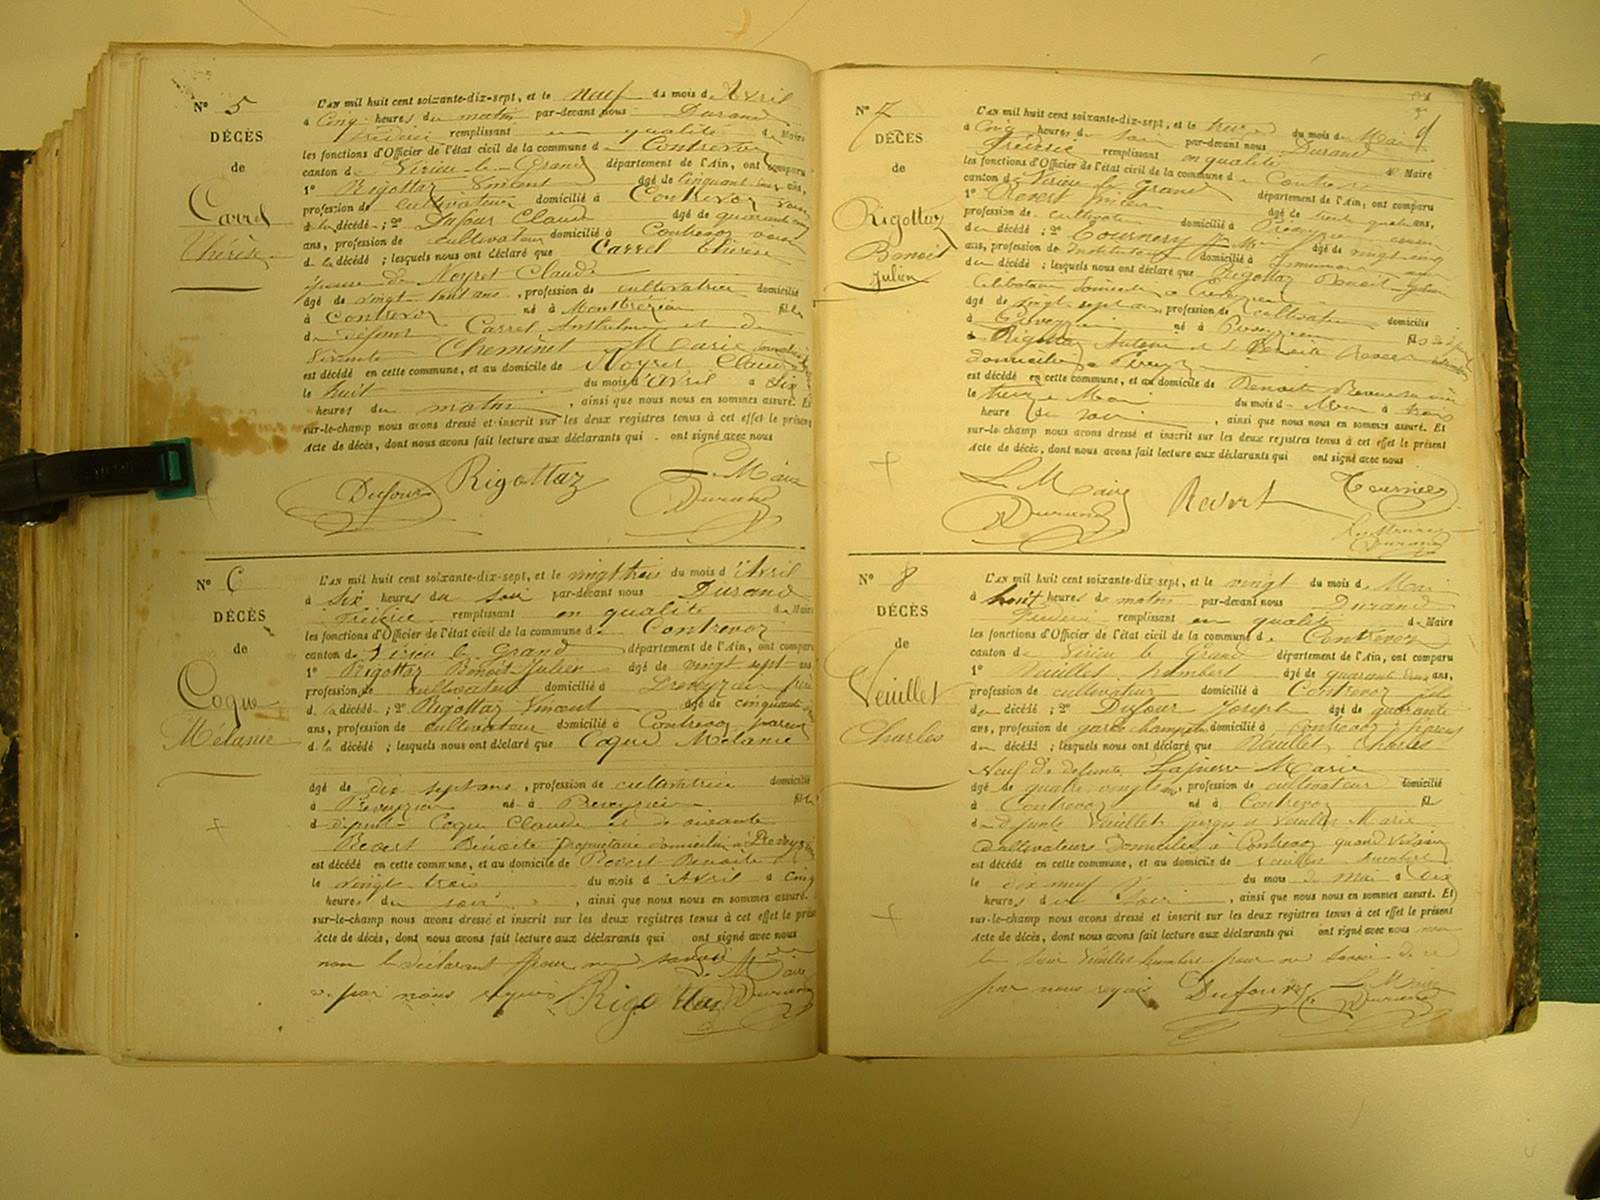 N° 5
DÉCÈS
de
Carrel
Thérèse
L'AN mil huit cent soixante-dix-sept, et le neuf du mois d Avril
à Cinq heures du matin par-devant nous Durand
Frédéric remplissant en qualité de Maire
les fonctions d'Officier de l'état civil de la commune de Contrevoz
canton de Virieu-le-Grand département de l'Ain, ont comparu
1° Rigottaz Vincent âgé de cinquante ans,
profession de cultivateur domicilié à Contrevoz voisin
d la décédée ; 2° Dufour Claude âgé de quarante
ans, profession de cultivateur domicilié à Contrevoz voisin
d la décédé ; lesquels nous ont déclaré que Carrel Thérèse
épouse de Moyret Claude
âgé de vingt ans, profession de cultivatrice domicilié
à Contrevoz né à Montbrézieu fille
de défunt Carrel Anthelme et de
vivante Cheminet Marie
est décédé en cette commune, et au domicile de Moyret Claude
le huit du mois d'Avril à six
heures du matin, ainsi que nous nous en sommes assuré. Et
sur-le-champ nous avons dressé et inscrit sur les deux registres tenus à cet effet le présent
Acte de décès, dont nous avons fait lecture aux déclarants qui ont signé avec nous
Dufour Rigottaz Le Maire
Durand
N° 6
DÉCÈS
de
Coque
Mélanie
L'AN mil huit cent soixante-dix-sept, et le vingt trois du mois d'Avril
à six heures du soir par-devant nous Durand
Frédéric remplissant en qualité de Maire
les fonctions d'Officier de l'état civil de la commune de Contrevoz
canton de Virieu le Grand département de l'Ain, ont comparu
1° Rigottaz Benoit Julien âgé de vingt sept ans
profession de cultivateur domicilié à Preveyzieu frère
d la décédé ; 2° Rigottaz Vincent âgé de cinquante
ans, profession de cultivateur domicilié à Contrevoz parent
d la décédé ; lesquels nous ont déclaré que Coque Mélanie
âgé de dix sept ans, profession de cultivatrice domicilié
à Preveyzieu né à Preveyzieu fille
d défunt Coque Claude et de vivante
Revert Benoite propriétaire domiciliée à Preveyzieu
est décédé en cette commune, et au domicile de Revert Benoite
le vingt trois du mois d'Avril à cinq
heures du soir, ainsi que nous nous en sommes assuré.
sur-le-champ nous avons dressé et inscrit sur les deux registres tenus à cet effet le présent
Acte de décès, dont nous avons fait lecture aux déclarants qui ont signé avec nous
non le déclarant pour ne savoir
par nous requis Rigottaz Le Maire
Durand
N° 7
DÉCÈS
de
Rigottaz
Benoit
Julien
L'AN mil huit cent soixante-dix-sept, et le treize du mois de Mai
à Cinq heures du soir par-devant nous Durand
Frédéric remplissant en qualité de Maire
les fonctions d'Officier de l'état civil de la commune de Contrevoz
canton de Virieu le Grand département de l'Ain, ont comparu
1° Revert âgé de ans,
profession de cultivateur domicilié à Preveyzieu
du décédé ; 2° Tournery âgé de vingt cinq
ans, profession de Instituteur domicilié à
du décédé ; lesquels nous ont déclaré que Rigottaz Benoit Julien
célibataire domicilié à Preveyzieu
âgé de vingt sept ans, profession de cultivateur domicilié
à Preveyzieu né à Preveyzieu
Rigottaz Antoine et de Benoite Revert
domiciliée à
est décédé en cette commune, et au domicile de Benoite Revert
le treize Mai du mois de Mai à trois
heure du soir, ainsi que nous nous en sommes assuré. Et
sur-le-champ nous avons dressé et inscrit sur les deux registres tenus à cet effet le présent
Acte de décès, dont nous avons fait lecture aux déclarants qui ont signé avec nous
Le Maire
Durand Revert
N° 8
DÉCÈS
de
Veuillet
Charles
L'AN mil huit cent soixante-dix-sept, et le vingt du mois de Mai
à huit heures de matin par-devant nous Durand
Frédéric remplissant en qualité de Maire
les fonctions d'Officier de l'état civil de la commune de Contrevoz
canton de Virieu le Grand département de l'Ain, ont comparu
1° Veuillet Humbert âgé de quarante ans,
profession de cultivateur domicilié à Contrevoz fils
du décédé ; 2° Dufour Joseph âgé de quarante
ans, profession de garde champêtre domicilié à Contrevoz
du décédé ; lesquels nous ont déclaré que Veuillet Charles
Veuf de défunte Marie
âgé de quatre vingts, profession de cultivateur domicilié
à Contrevoz né à Contrevoz fils
de défunts Veuillet et Marie
cultivateurs domiciliés à Contrevoz quand vivaient
est décédé en cette commune, et au domicile de Veuillet Humbert
le dix neuf du mois de Mai à dix
heures du soir, ainsi que nous nous en sommes assuré. Et
sur-le-champ nous avons dressé et inscrit sur les deux registres tenus à cet effet le présent
Acte de décès, dont nous avons fait lecture aux déclarants qui ont signé avec nous non
le sieur Veuillet Humbert pour ne savoir de ce
par nous requis Dufour Le Maire
Durand